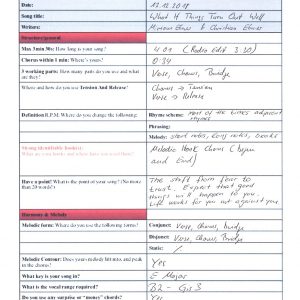 Date: 13.12.2018
Song title: What If Things Turn Out Well
Writers:
Structure/general
Max 3min 30s: How long is your song? 4:01 (Radio Edit 3:30)
Chorus within 1 min: Where's yours? 0:34
3 working parts: How many parts do you use and what are they? Verse, Chorus, Bridge
Where and how do you use Tension And Release? Chorus → Tension
Verse → Release
Definition R.P.M. Where do you change the following: Rhyme scheme: most of the times adjacent rhymes
Phrasing:
Melody: short notes, long notes, breaks
Strong identifiable hook(s):
What are your hooks and where have you used them? Melodic Hook Chorus (Begin and End)
Have a point? What is the point of your song? (No more than 20 words!) The shift from fear to trust. Expect that good things will happen to you. Life works for you not against you.
Harmony & Melody
Melodic form: Where do you use the following forms? Conjunct: Verse, Chorus, Bridge
Disjunct: Verse, Chorus, Bridge
Static: /
Melodic Contour: Does your melody hit into, and peak in the chorus? Yes!
What key is your song in? E Major
What is the vocal range required? B2 - G#3
Do you use any surprise or "money" chords? No